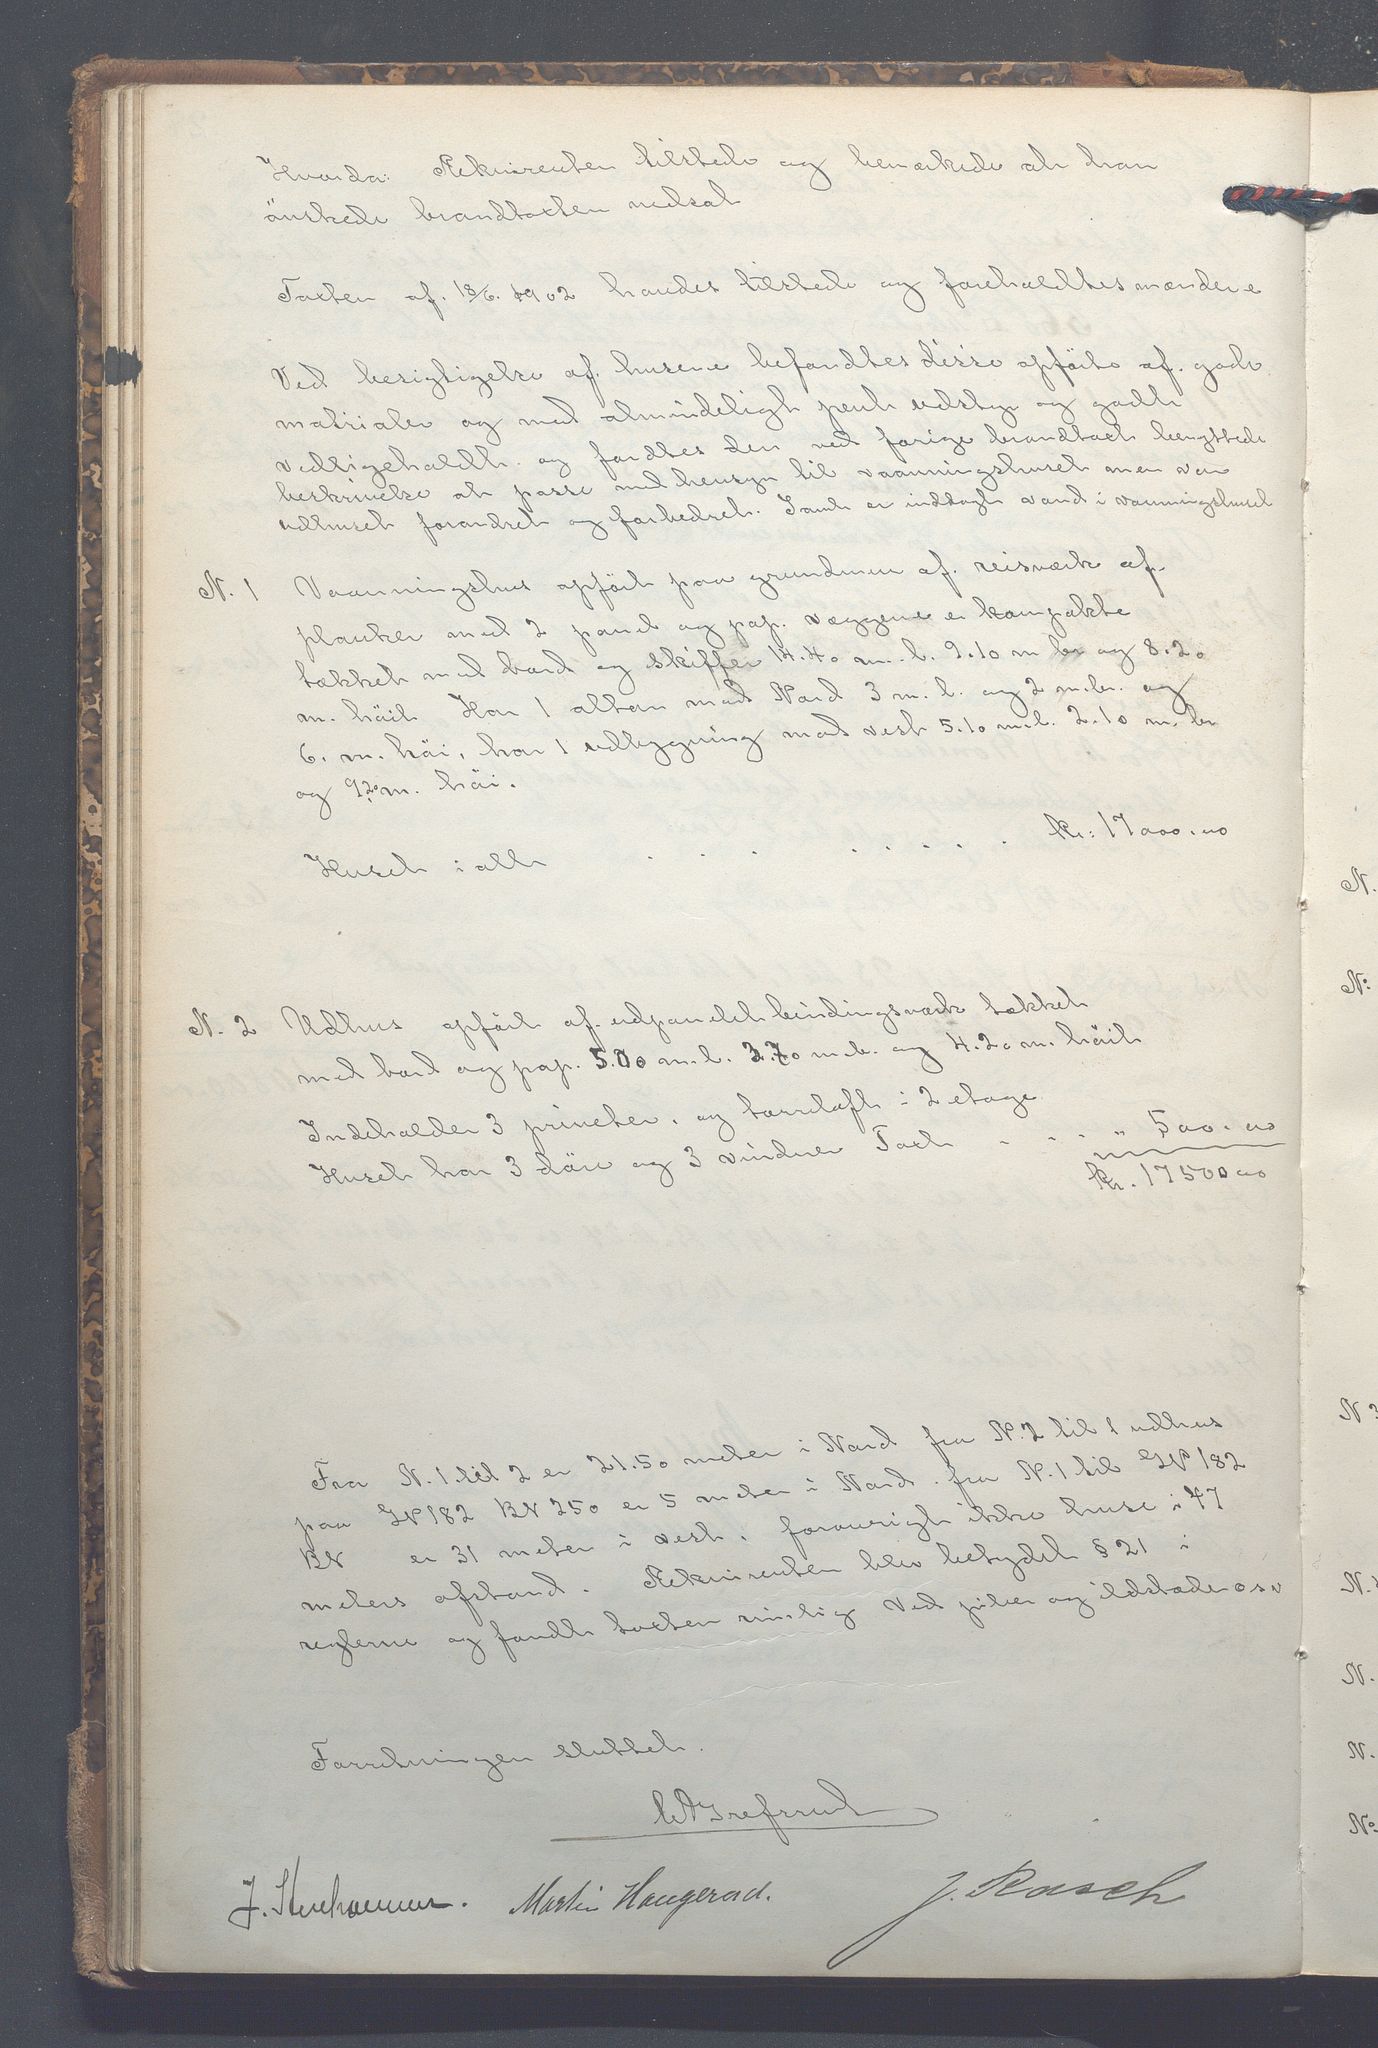 Hvorda: Rekvirenten tilstede og bemærkede at han
önskede brandtaxten nedsat
Taxten af. 18/6. 1902 havdes tilstede og foreholdtes mændene
Ved besigtigelse af. husene befandtes disse opförte af. gode
materialer og med almindeligt pent udstyr og godt
vedligeholdt. og fandtes den ved forrige brandtaxt benyttede
beskrivelse at passe med hensyn til vaaningshuset men var
udhuset forandret og forbedret. Samt er indtagt vand i vaaningshuset
N. 1 Vaaningshus opfört paa grundmur af. reisværk af.
planker med 2 panel og pap. væggene er kompakte
tækket med bord og skiffer 14.40 m. l. 9.10 m br og 8.20
m. höit Har 1 altan mod Nord 3 m. l. og 2 m. br. og
6. m. höi, har 1 udbygning mod vest 5.10 m. l. 2.10 m. br
og 9.20 m. höi.
Huset i alt . . . . . . . . kr: 17000.00
N. 2 Udhus opfört af. udpanelet bindingsværk tækket
med bord og pap. 5.00 m. l. 3.70 m. b. og 4.20 m. höit
Indeholder 3 priveter. og tørreloft i 2 etage.
Huset har 3 döre og 3 vinduer Taxt . . . " 500.00
Kr. 17500 00
Fra N. 1 til 2 er 21.50 meter i Nord fra N. 2 til 1 udhus
paa GN 182 BN 250 er 5 meter i Nord. fra N. 1 til GN 182
BN er 31 meter i vest. forøvrigt ikke huse i 47
meters afstand. Rekvirenten blev betydet § 21 i
reglerne og fandt taxten rimelig Ved piber og ildstæder osv
Forretningen sluttet.
J. Martin Haugerud. J. Rasch